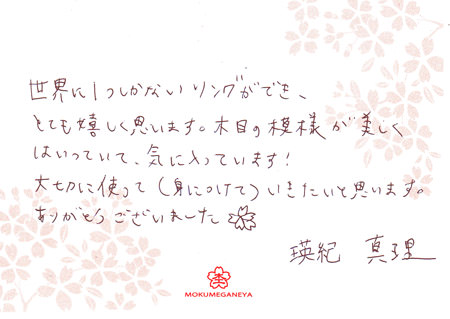 世界に1つしかないリングができ、
とても嬉しく思います。木目の模様が美しく
はいっていて、気に入っています!
大切に使って(身につけて)いきたいと思います。
ありがとうございました
瑛紀 真理
MOKUMEGANEYA